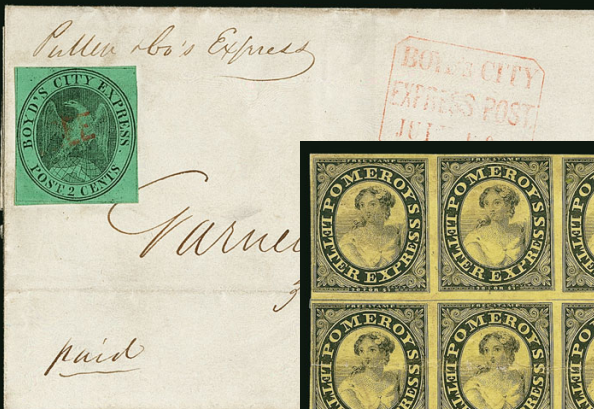 Pullen & Co's Express
BOYD'S CITY EXPRESS
POST 2 CENTS
BOYD'S CITY
EXPRESS POST
paid
FREE STAMP
POMEROY'S
LETTER EXPRESS
FREE STAMP
POMEROY'S
LETTER EXPRESS
POMEROY'S
LETTER EXPRESS
POMEROY'S
LETTER EXPRESS